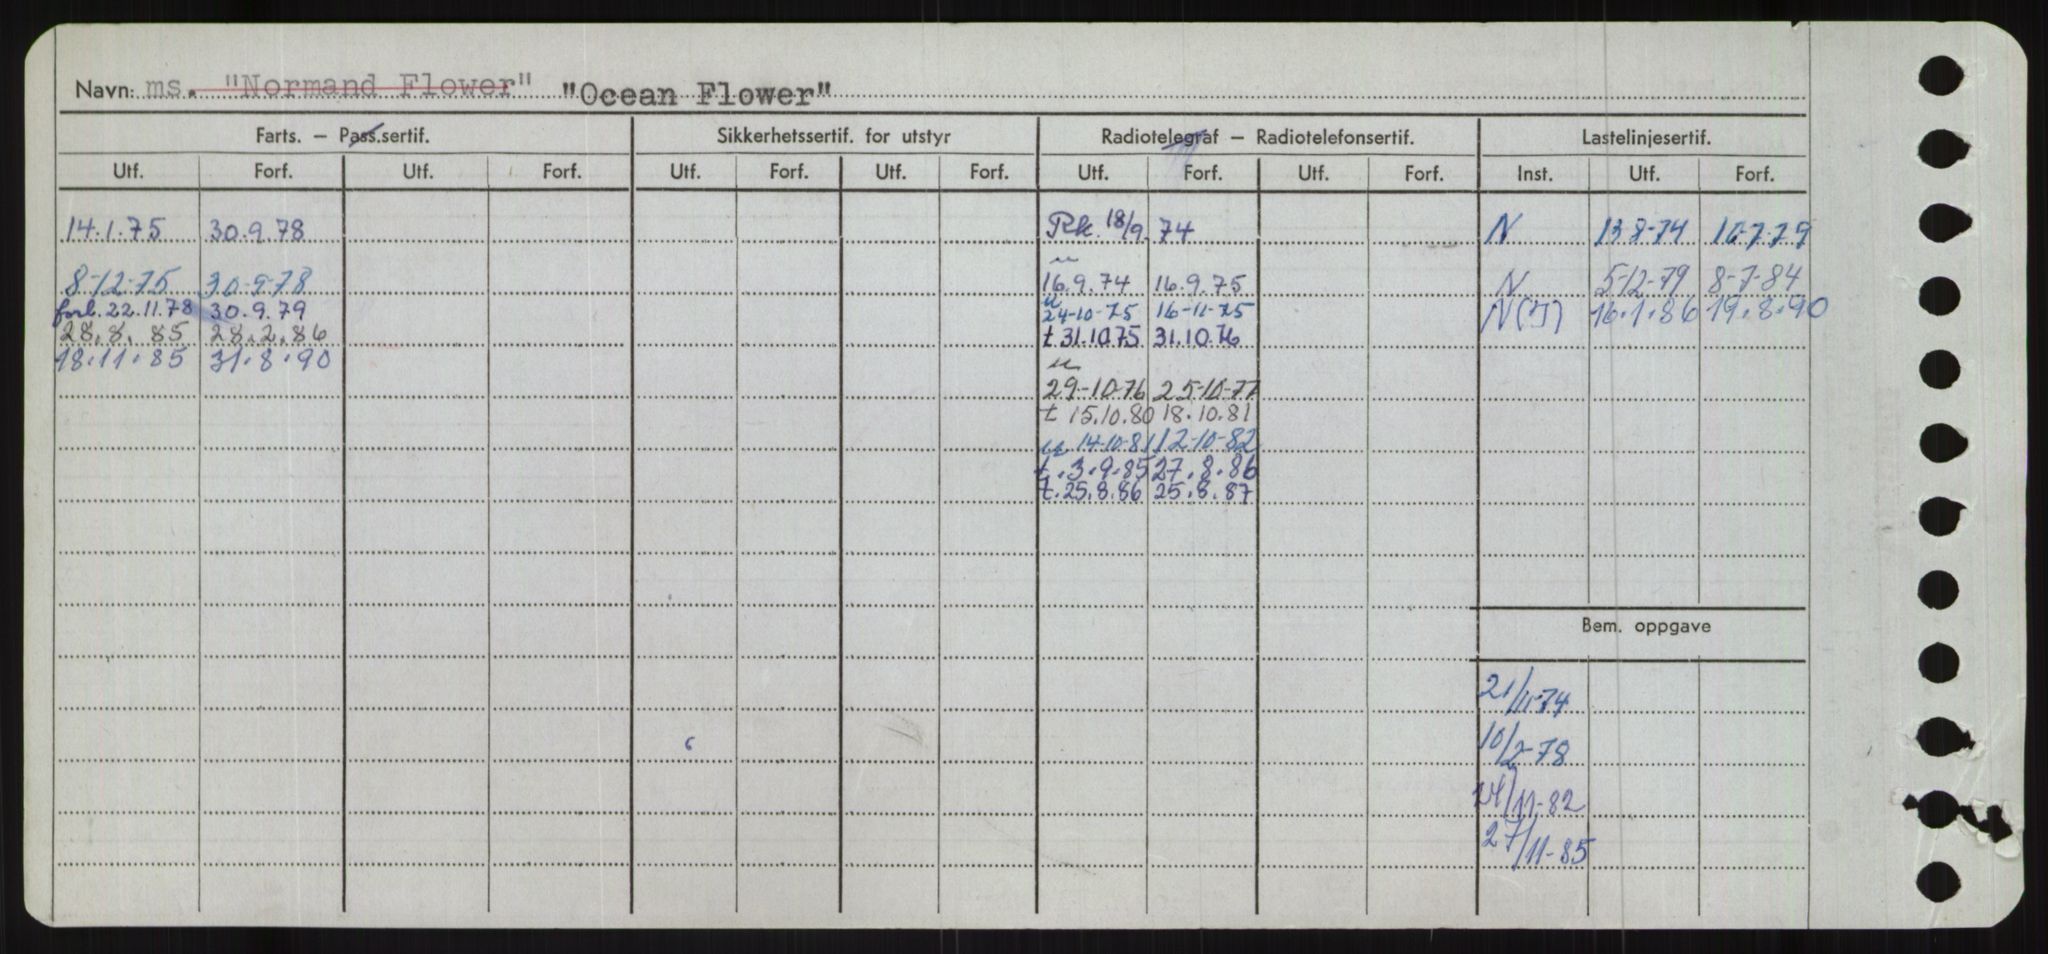 Navn: ms. "Normand Flower" "Ocean Flower"
Farts. — Pass.sertif. Sikkerhetssertif. for utstyr Radiotelegraf — Radiotelefonsertif. Lastelinjesertif.
Utf. Forf. Utf. Forf. Utf. Forf. Utf. Forf. Utf. Forf. Utf. Forf. Inst. Utf. Forf.
14.1.75 30.9.78 Rk. 18/9.74 N 13-8-74
u
8-12-75 30-9-78 16.9.74 16.9.75 N 5-12-79 8-7-84
u
forl. 22.11.78 30.9.79 24-10-75 16-11-75 N(J) 16.1.86 19.8.90
28.8.85 28.2.86 t 31.10.75 31.10.76
18.11.85 31.8.90 u
29-10-76 25-10-77
t 15.10.80 18.10.81
u 14-10-81 12-10-82
t.3.9.85 27.8.86
t.25.8.86 25.8.87
Bem. oppgave
21/11-74
10/2-78
24/11-82
27/11-85